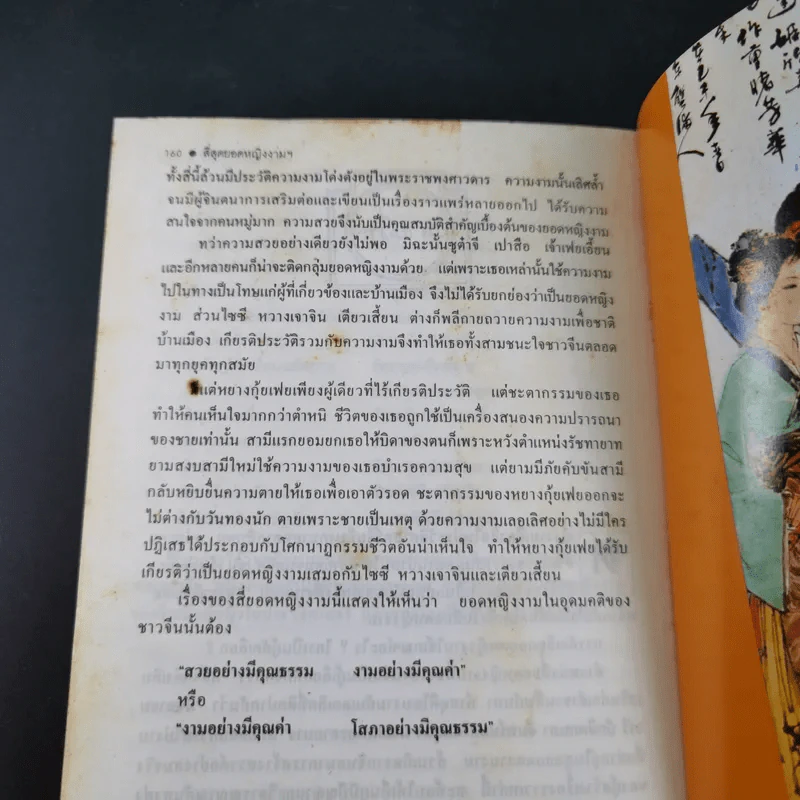 160 ● สี่สุดยอดหญิงงามฯ
ทั้งสี่นี้ล้วนมีประวัติความงามโด่งดังอยู่ในพระราชพงศาวดาร ความงามนั้นเลิศล้ำ
จนมีผู้จินตนาการเสริมต่อและเขียนเป็นเรื่องราวแพร่หลายออกไป ได้รับความ
สนใจจากคนหมู่มาก ความสวยจึงนับเป็นคุณสมบัติสำคัญเบื้องต้นของยอดหญิงงาม
ทว่าความสวยอย่างเดียวยังไม่พอ มิฉะนั้นซูต๋าจี เปาสือ เจ้าเฟยเอี้ยน
และอีกหลายคนก็น่าจะติดกลุ่มยอดหญิงงามด้วย แต่เพราะเธอเหล่านั้นใช้ความงาม
ไปในทางเป็นโทษแก่ผู้ที่เกี่ยวข้องและบ้านเมือง จึงไม่ได้รับยกย่องว่าเป็นยอดหญิง
งาม ส่วนไซซี หวางเจาจิน เตียวเสี้ยน ต่างก็พลีกายถวายความงามเพื่อชาติ
บ้านเมือง เกียรติประวัติรวมกับความงามจึงทำให้เธอทั้งสามชนะใจชาวจีนตลอด
มาทุกยุคทุกสมัย
แต่หยางกุ้ยเฟยเพียงผู้เดียวที่ไร้เกียรติประวัติ แต่ชะตากรรมของเธอ
ทำให้คนเห็นใจมากกว่าตำหนิ ชีวิตของเธอถูกใช้เป็นเครื่องสนองความปรารถนา
ของชายเท่านั้น สามีแรกยอมยกเธอให้บิดาของตนก็เพราะหวังตำแหน่งรัชทายาท
ยามสงบสามีใหม่ใช้ความงามของเธอบำเรอความสุข แต่ยามมีภัยคับขันสามี
กลับหยิบยื่นความตายให้เธอเพื่อเอาตัวรอด ชะตากรรมของหยางกุ้ยเฟยออกจะ
ไม่ต่างกับวันทองนัก ตายเพราะชายเป็นเหตุ ด้วยความงามเลอเลิศอย่างไม่มีใคร
ปฏิเสธได้ประกอบกับโศกนาฏกรรมชีวิตอันน่าเห็นใจ ทำให้หยางกุ้ยเฟยได้รับ
เกียรติว่าเป็นยอดหญิงงามเสมอกับไซซี หวางเจาจินและเตียวเสี้ยน
เรื่องของสี่ยอดหญิงงามนี้แสดงให้เห็นว่า ยอดหญิงงามในอุดมคติของ
ชาวจีนนั้นต้อง
"สวยอย่างมีคุณธรรม งามอย่างมีคุณค่า"
หรือ
"งามอย่างมีคุณค่า โสภาอย่างมีคุณธรรม"